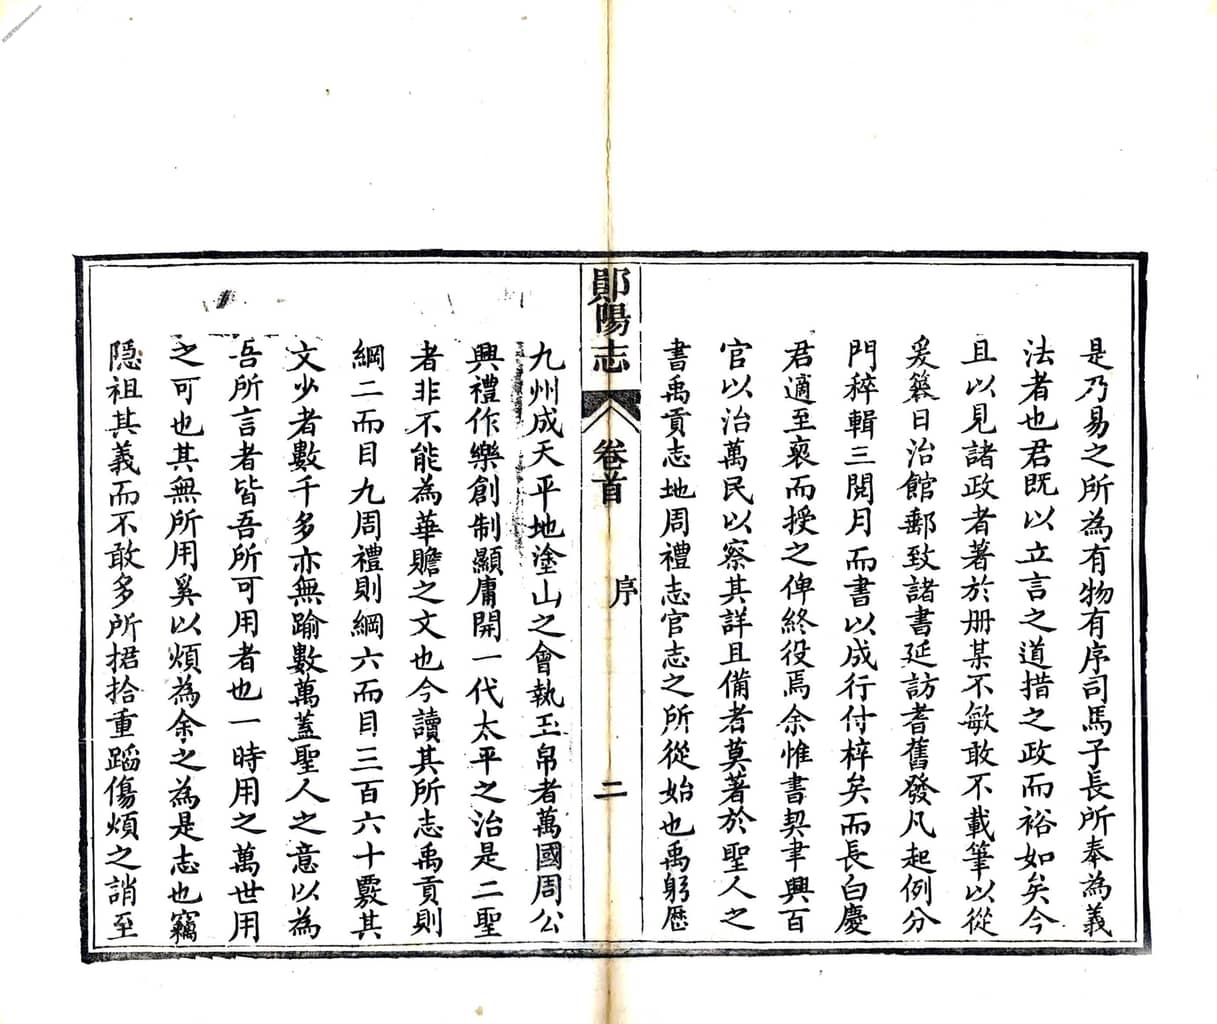 是乃易之所為有物有序司馬子長所奉為義
法者也君既以立言之道措之政而裕如矣今
且以見諸政者著於册某不敏敢不載筆以從
爰簽日治館郵致諸書延訪耆舊發凡起例分
門稡輯三閱月而書以成行付梓矣而長白慶
君適至裒而授之俾終役焉余惟書契聿興百
官以治萬民以察其詳且備者莫著於聖人之
書禹貢志地周禮志官志之所從始也禹躬歷
鄖陽志
卷首
序
二
九州成天平地塗山之會執玉帛者萬國周公
興禮作樂創制顯庸開一代太平之治是二聖
者非不能為華贍之文也今讀其所志禹貢則
綱二而目九周禮則綱六而目三百六十覈其
文少者數千多亦無踰數萬蓋聖人之意以為
吾所言者皆吾所可用者也一時用之萬世用
之可也其無所用奚以煩為余之為是志也竊
隱祖其義而不敢多所捃拾重蹈傷煩之誚至